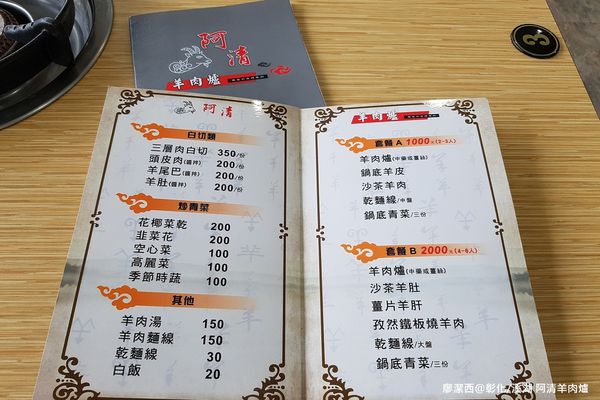 阿清
羊肉爐
3
阿清
白切類
三層肉白切 350/份
頭皮肉(醬拌) 200/份
羊尾巴(醬拌) 200/份
羊肚(醬拌) 200/份
炒青菜
花椰菜乾 200
韭菜花 200
空心菜 100
高麗菜 100
季節時蔬 100
其他
羊肉湯 150
羊肉麵線 150
乾麵線 30
白飯 20
羊肉爐
套餐 A 1000元(2-3人)
羊肉爐(中藥或薑絲)
鍋底羊皮
沙茶羊肉
乾麵線/中盤
鍋底青菜/三份
套餐 B 2000元(4-6人)
羊肉爐(中藥或薑絲)
沙茶羊肚
薑片羊肝
孜然鐵板燒羊肉
乾麵線/大盤
鍋底青菜/三份
廖潔西@彰化/溪湖 阿清羊肉爐